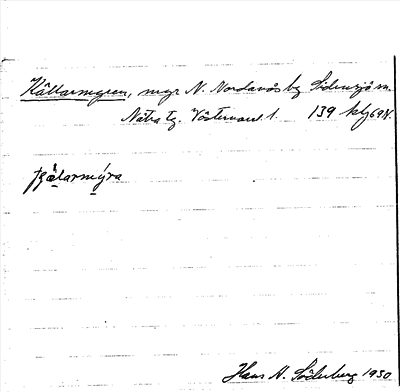 Källarmyren, myr N. Nordanås by Sidensjö sn.
Nätra tg. Västernorrl. l. 139 
tjä̀larmýra
Hans A. Söderberg 1930